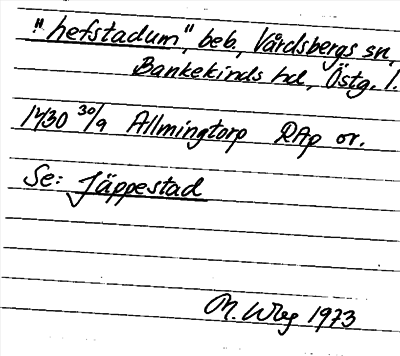 "hefstadum", beb., Vårdsbergs sn,
Bankekinds hd, Östg. l.
1430 30/9 Allmingtorp RAp or.
Se: Jäppestad
M. Wbg 1973